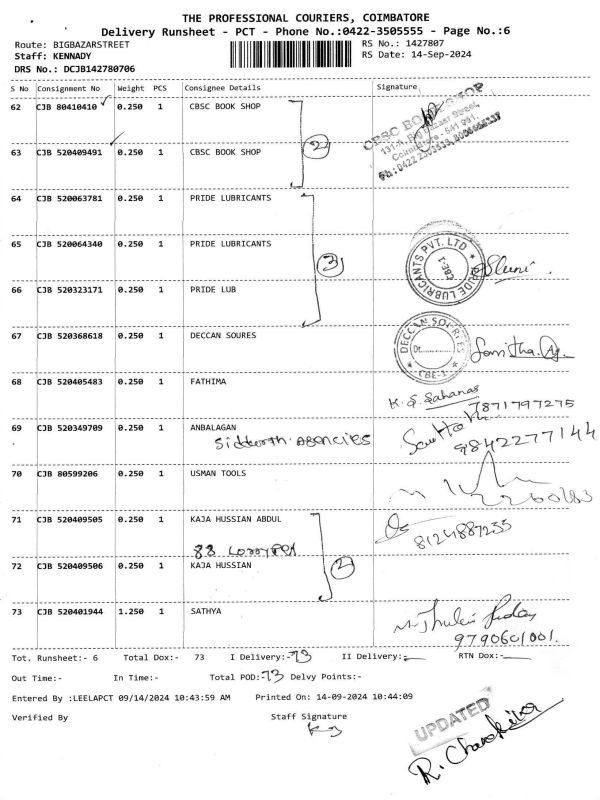 THE PROFESSIONAL COURIERS, COIMBATORE
Delivery Runsheet - PCT - Phone No.:0422-3505555 - Page No.:6
Route: BIGBAZARSTREET RS No.: 1427807
Staff: KENNADY RS Date: 14-Sep-2024
DRS No.: DCJB142780706
S No Consignment No Weight PCS Consignee Details Signature
62 CJB 80410410 0.250 1 CBSC BOOK SHOP
CBSC BOOK SHOP
131-A, Big Bazaar Street,
Coimbatore - 641 001.
2
63 CJB 520409491 0.250 1 CBSC BOOK SHOP
64 CJB 520063781 0.250 1 PRIDE LUBRICANTS
65 CJB 520064340 0.250 1 PRIDE LUBRICANTS
3
PRIDE LUBRICANTS PVT. LTD
CBE-1
66 CJB 520323171 0.250 1 PRIDE LUB
67 CJB 520368618 0.250 1 DECCAN SOURES
DECCAN SOURIES
Dt
CBE-1
68 CJB 520405483 0.250 1 FATHIMA
K. S. Sahanas
7871797275
69 CJB 520349709 0.250 1 ANBALAGAN
Siddharth. AGENCIES
9842277144
70 CJB 80599206 0.250 1 USMAN TOOLS
71 CJB 520409505 0.250 1 KAJA HUSSIAN ABDUL
8124887235
88
2
72 CJB 520409506 0.250 1 KAJA HUSSIAN
73 CJB 520401944 1.250 1 SATHYA
9790601001.
Tot. Runsheet:- 6 Total Dox:- 73 I Delivery:-73 II Delivery:- RTN Dox:-
Out Time:- In Time:- Total POD:-73 Delvy Points:-
Entered By :LEELAPCT 09/14/2024 10:43:59 AM Printed On: 14-09-2024 10:44:09
Verified By Staff Signature
UPDATED